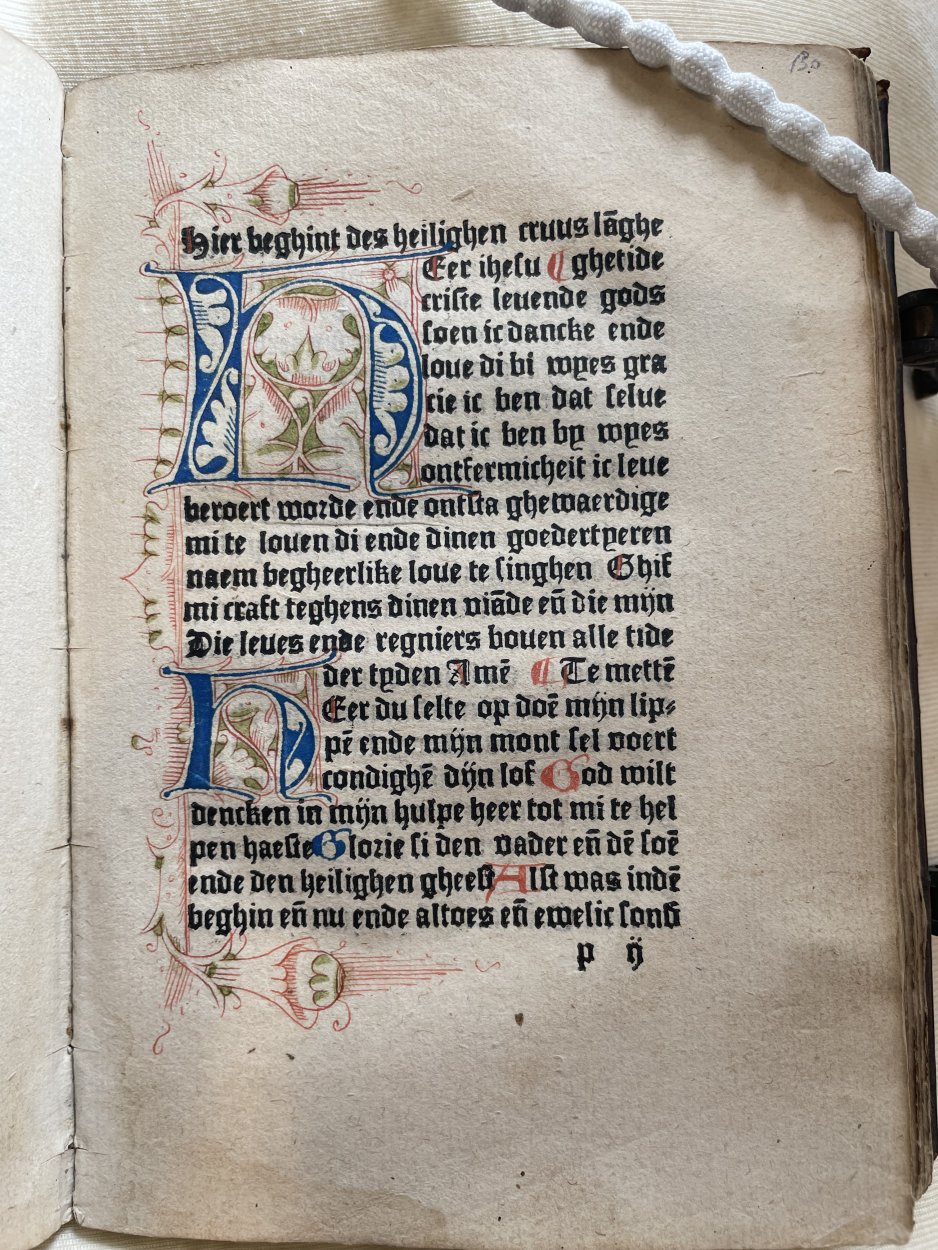 Hier beghint des heilighen cruus lāghe
HEer ihesu ¶ ghetide
criste leuende gods
soen ic dancke ende
loue di bi wyes gra
cie ic ben dat selue
dat ic ben by wyes
ontfermicheit ic leue
beroert worde ende ontsta ghewaerdige
mi te louen di ende dinen goedertyeren
naem begheerlike loue te singhen Ghif
mi craft teghens dinen viāde eñ die mijn
Die leues ende regniers bouen alle tide
der tyden Amē ¶ Te mettē
HEer du selte op doē mijn lip⸗
pē ende mijn mont sel voert
condighē dijn lof God wilt
dencken in mijn hulpe heer tot mi te hel
pen haeste Glorie si den vader eñ dē soē
ende den heilighen gheest Alst was indē
beghin eñ nu ende altoes eñ ewelic sond
p ij